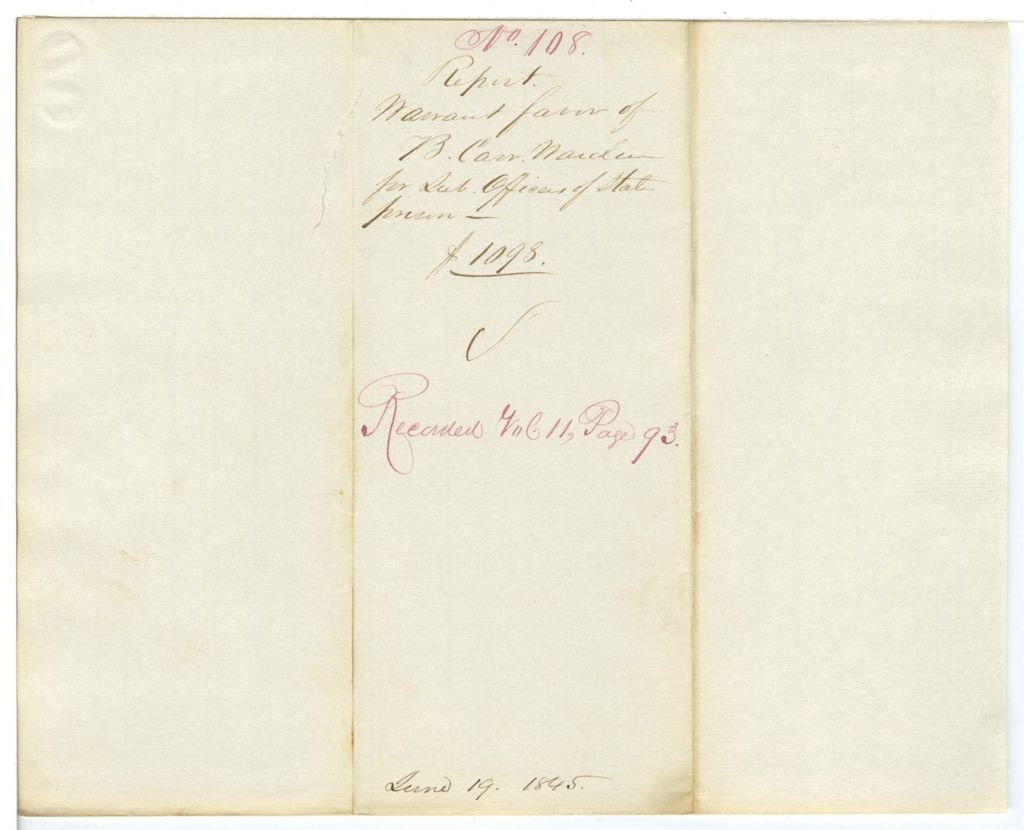 No. 108.
Report.
Warrant favor of
B. Carr. Warden
for Sub. Officers of State
prison —
$ 1098.
Recorded Vol 11, Page 93.
June 19. 1845.